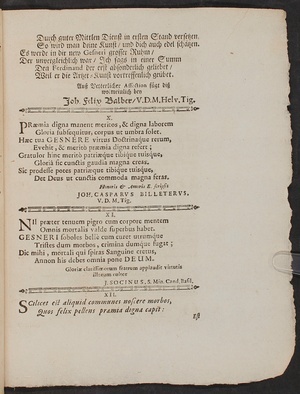 Durch guter Mittlen Dienst in ersten Stand versetzen,
So wird man deine Kunst / und dich auch edel schätzen.
Es werde in dir new Gesneri grosser Ruhm /
Der unvergleichlich war / Ich sags in einer Summ
Den Ferdinand der erst absonderlich geliebet /
Weil er die Artzney-Kunst vortreffenlich geübet.
Auß Vetterlicher Affection fügt diß
wolmeinlich bey
Joh. Felix Balber / V.D.M. Helv. Tig.
X.
PRæmia digna manent meritos, & digna laborem
Gloria subsequitur, corpus ut umbra solet.
Hæc tua GESNERE virtus Doctrinaque rerum,
Evehit, & meritò præmia digna refert;
Gratulor hinc meritò patriæque tibique tuisque,
Gloria sic cunctis gaudia magna creat.
Sic prodesse potes patriæque tibique tuisque,
Det Deus ut cunctis commoda magna feras.
Honoris & Amoris E. scripsit
JOH. CASPARUS BILLETERUS,
V. D. M. Tig.
XI.
NIl præter tenuem pigro cum corpore mentem
Omnis mortalis valdè superbus habet.
GESNERI soboles bellè cum curet utrumque
Tristes dum morbos, crimina dumque fugat;
Dic mihi, mortali qui spiras Sanguine cretus,
Annon his debet omnia pone DEUM.
Gloriæ clarissimorum fratrum applaudit virtutis
illorum cultor
J. SOCINUS, S. Min. Cand. Basil.
XII.
SCilicet est aliquid communes noscere morbos,
Quos felix pellens præmia digna capit:
Est